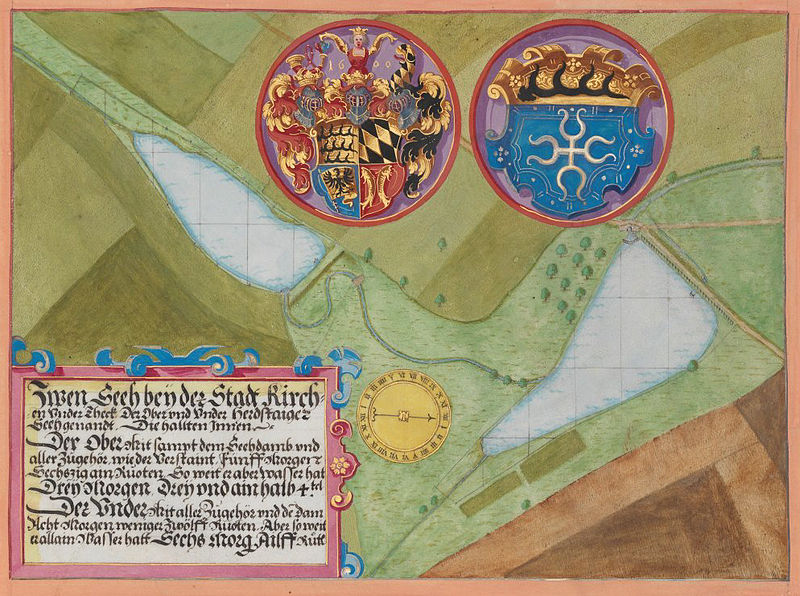 1600
Zwen Seeh beÿ der Stadt Kirch-
en Vnder Theck Der Ober vnd Vnder Herdtfelder
Seeh genandt. Die hallten Innen.
Der Ober Mit sampt dem Seehdamb vnd
aller Zugehör, wie der Verstaint, Fünff Morgen
Sechszig ain Ruoten. So weit er aber Wasser hat
Dreÿ Morgen, Dreÿ vnd ain halb 4.tel
Der Vnder Mit aller Zugehör vnd dē Dam
Acht Morgen weniger Zwölff Ruoten. Aber so weit
er allain Wasser hatt Sechs Morg Ailff Rütt